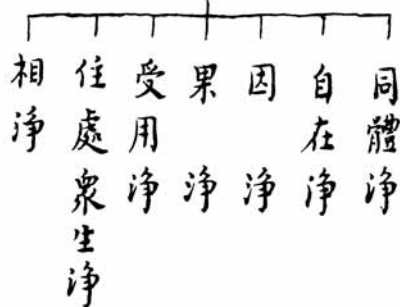 同體淨
自在淨
因淨
果淨
受用淨
住處衆生淨
相淨